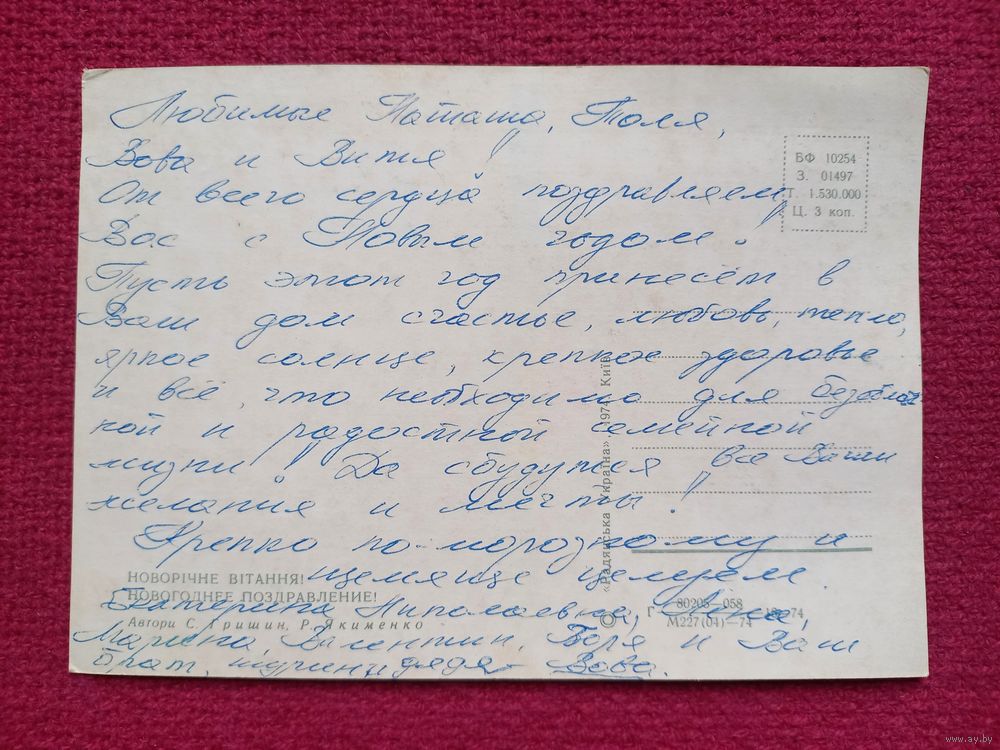 Любимые Наташа, Толя,
Вова и Витя!
От всего сердца поздравляем
Вас с Новым годом!
Пусть этот год принесёт в
Ваш дом счастье, любовь, тепло,
яркое солнце, крепкое здоровье
и всё, что необходимо для безоблач
ной и радостной семейной
жизни! Да сбудутся все Ваши
желания и мечты!
Крепко по-морозному и
щемяще целуем.
Екатерина Николаевна,
Марина, Валентин, Боря и Ваш
брат, дядя Вова.
БФ 10254
З. 01497
Т. 1.530.000
Ц. 3 коп.
«Радянська Україна», Київ
НОВОРІЧНЕ ВІТАННЯ!
НОВОГОДНЕЕ ПОЗДРАВЛЕНИЕ!
Автори С. Гришин, Р. Якименко
Г 80205—058
М227(04)—74
www.ay.by